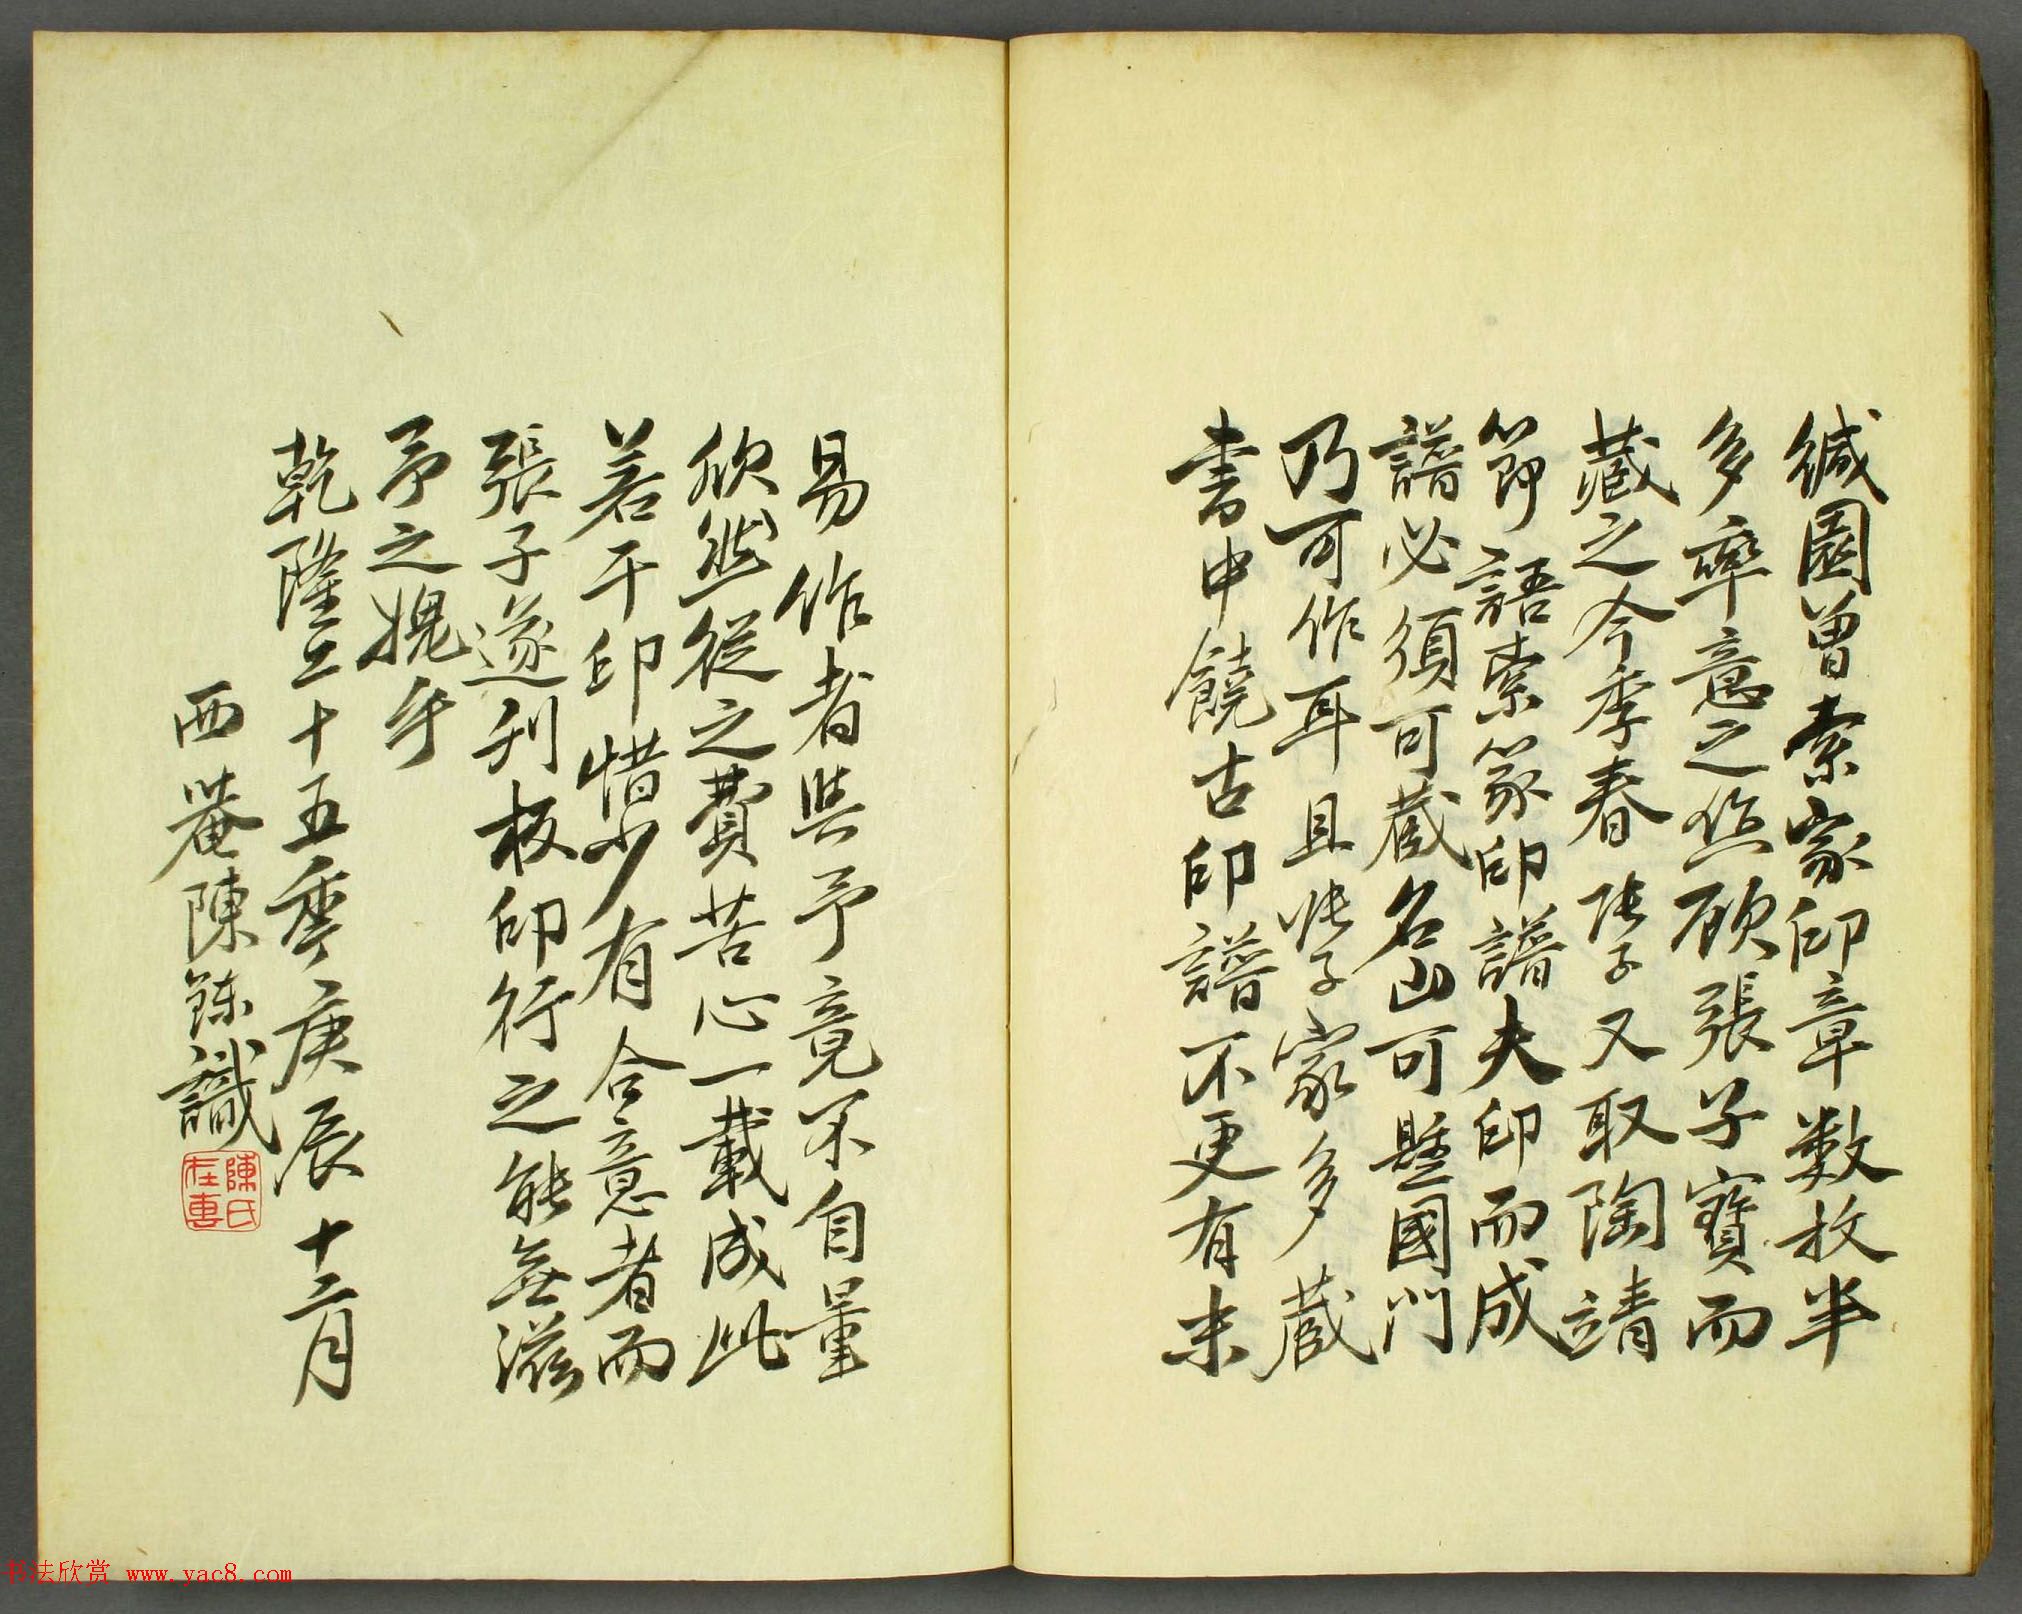 緘園曾索家印章数枚半
多率意之作顧張子寶而
藏之今季春張子又取陶靖
節語索篆印譜夫印而成
譜必須可藏名山可懸國門
乃可作耳且張子家多藏
書中饒古印譜不更有未
易作者與予竟不自量
欣然從之費苦心一載成此
若干印惜少有合意者而
張子遂刊板印行之能無滋
予之媿乎
乾隆二十五季庚辰十二月
西菴陳鍊識
陳氏在專
书法欣赏 www.yac8.com